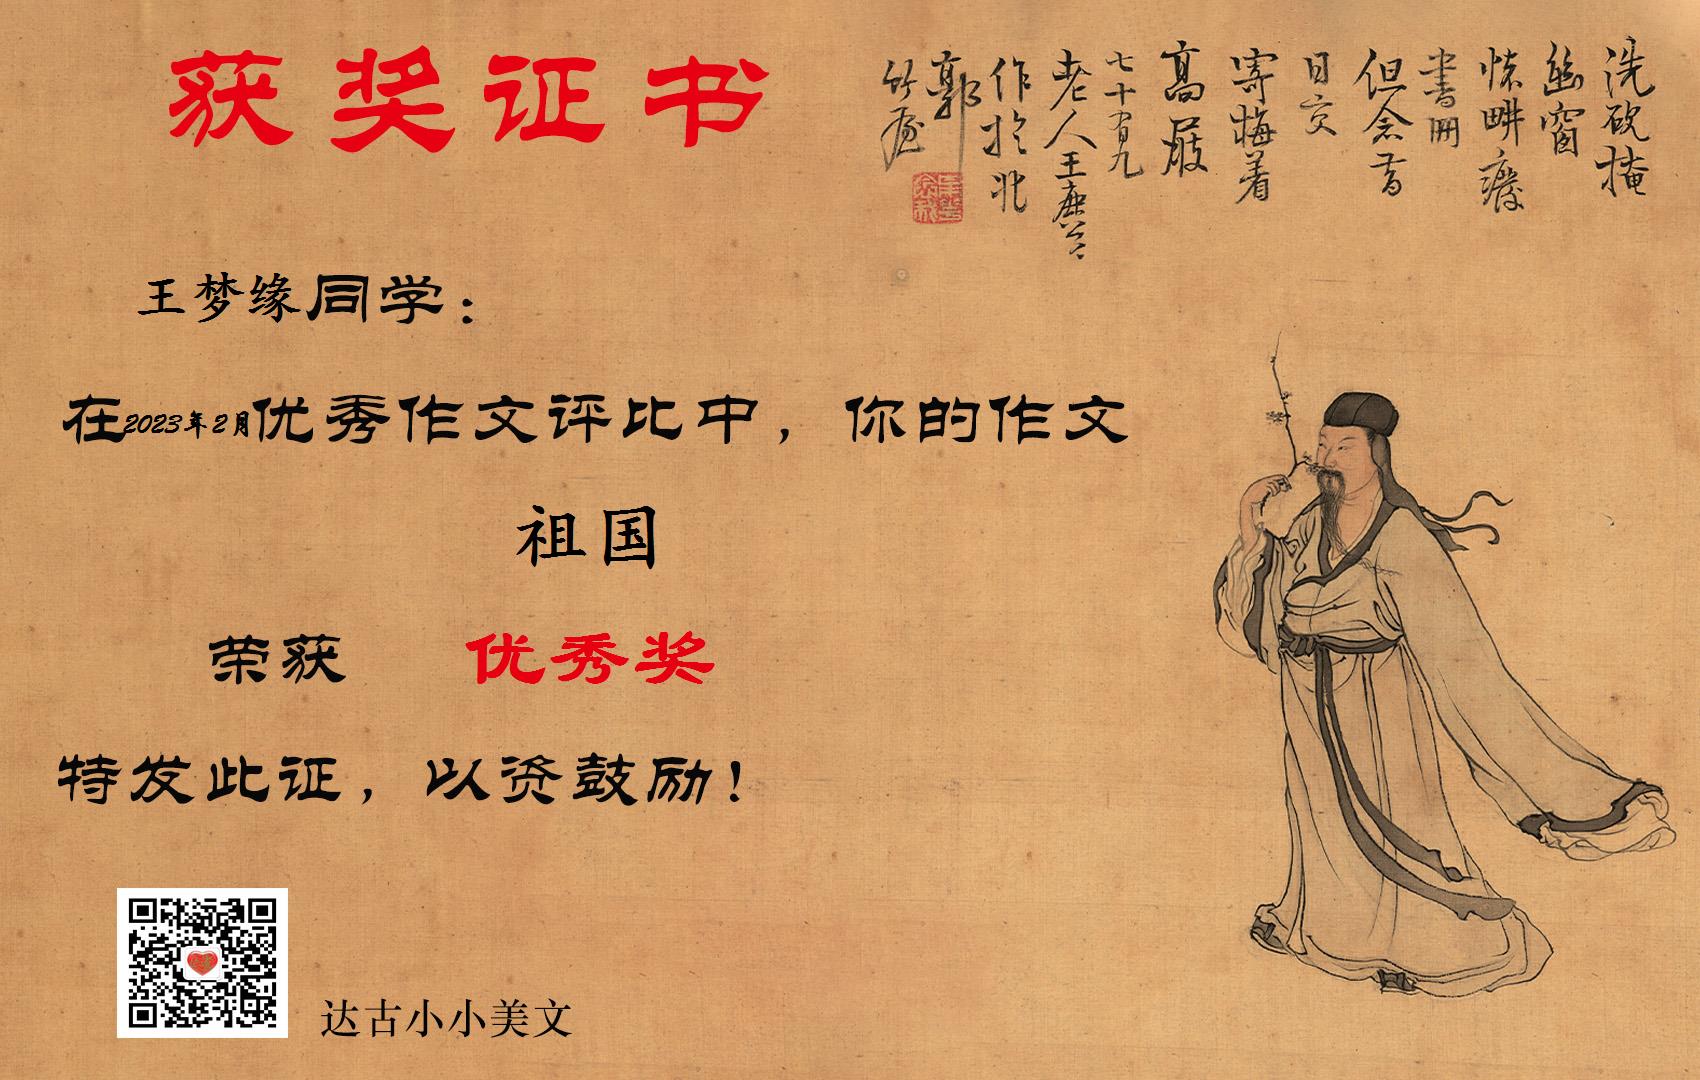 获奖证书
洗砚掩
幽窗
怀畊废
书册
但念昔
日交
寄梅着
高
七十有九
老人王
作于北
郭
竹
王梦缘同学：
在2023年2月优秀作文评比中，你的作文
祖国
荣获 优秀奖
特发此证，以资鼓励！
达古小小美文